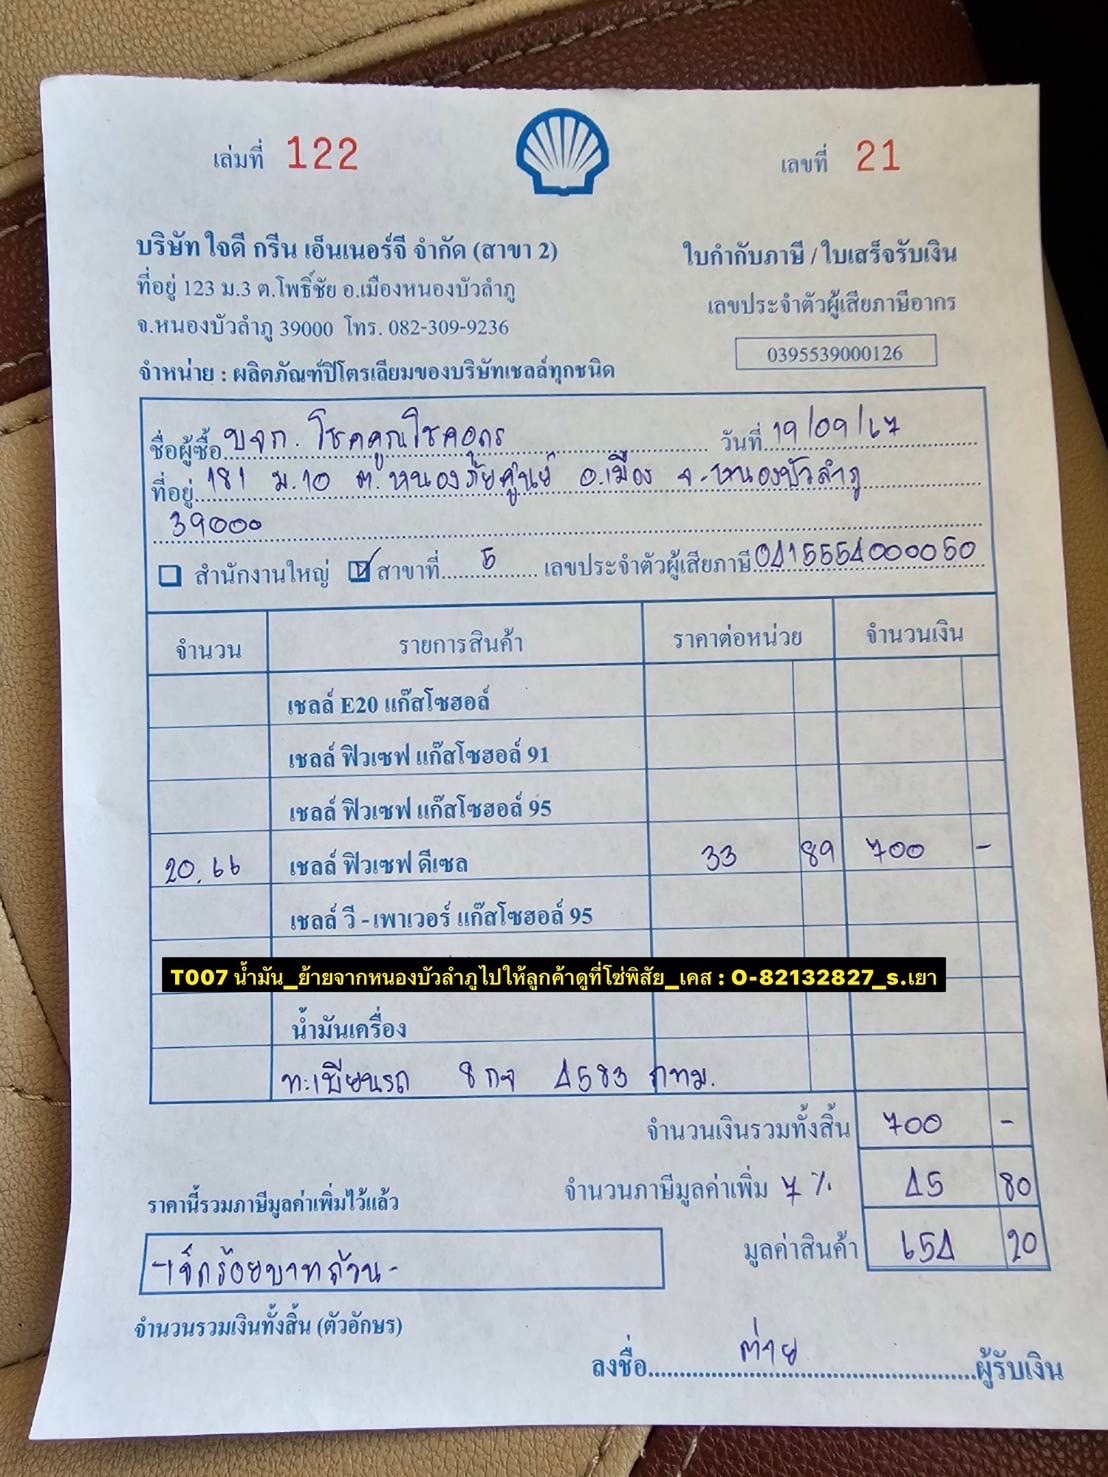 เล่มที่ 122
เลขที่ 21
บริษัท ใจดี กรีน เอ็นเนอร์จี จำกัด (สาขา 2)
ที่อยู่ 123 ม.3 ต.โพธิ์ชัย อ.เมืองหนองบัวลำภู
จ.หนองบัวลำภู 39000 โทร. 082-309-9236
จำหน่าย : ผลิตภัณฑ์ปิโตรเลียมของบริษัทเชลล์ทุกชนิด
ใบกำกับภาษี / ใบเสร็จรับเงิน
เลขประจำตัวผู้เสียภาษีอากร
0395539000126
ชื่อผู้ซื้อ บจก. โชคคูณโชคอุดร วันที่ 19/09/67
ที่อยู่ 181 ม.10 ต.หนองภัยศูนย์ อ.เมือง จ.หนองบัวลำภู
39000
สำนักงานใหญ่ สาขาที่ 5 เลขประจำตัวผู้เสียภาษี 0415554000050
จำนวน รายการสินค้า ราคาต่อหน่วย จำนวนเงิน
เชลล์ E20 แก๊สโซฮอล์
เชลล์ ฟิวเซฟ แก๊สโซฮอล์ 91
เชลล์ ฟิวเซฟ แก๊สโซฮอล์ 95
20.66 เชลล์ ฟิวเซฟ ดีเซล 33 89 700 -
เชลล์ วี - เพาเวอร์ แก๊สโซฮอล์ 95
T007 น้ำมัน_ย้ายจากหนองบัวลำภูไปให้ลูกค้าดูที่โซ่พิสัย_เคส : O-82132827_s.เยา
น้ำมันเครื่อง
ทะเบียนรถ 8กจ 4583 กทม.
จำนวนเงินรวมทั้งสิ้น 700 -
จำนวนภาษีมูลค่าเพิ่ม 7 % 45 80
ราคานี้รวมภาษีมูลค่าเพิ่มไว้แล้ว
มูลค่าสินค้า 654 20
-เจ็ดร้อยบาทถ้วน-
จำนวนรวมเงินทั้งสิ้น (ตัวอักษร)
ลงชื่อ ต่าย ผู้รับเงิน